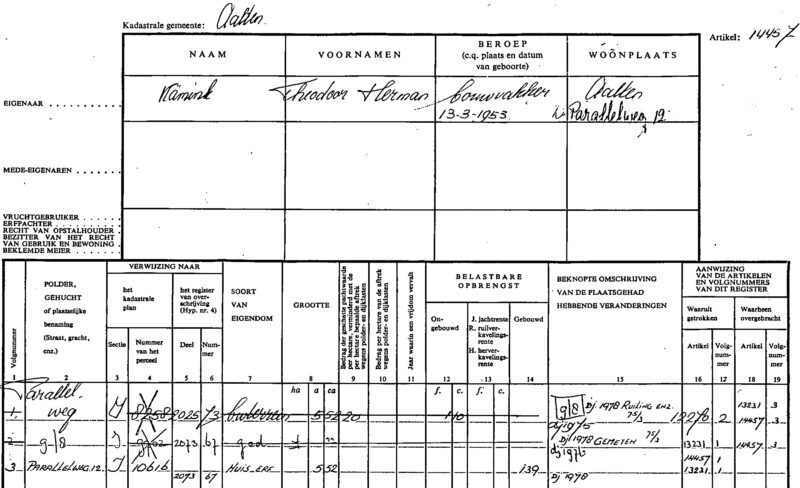 Kadastrale gemeente: Aalten
Artikel: 14457
NAAM
VOORNAMEN
BEROEP
(c.q. plaats en datum
van geboorte)
WOONPLAATS
EIGENAAR
Theodoor Herman
bouwvakker
Aalten
13-3-1953
Parallelweg 12
MEDE-EIGENAREN
VRUCHTGEBRUIKER
ERFPACHTER
RECHT VAN OPSTALHOUDER
BEZITTER VAN HET RECHT
VAN GEBRUIK EN BEWONING
BEKLEMDE MEIER
Volgnummer
POLDER,
GEHUCHT
of plaatselijke
benaming
(Straat, gracht,
enz.)
VERWIJZING NAAR
het
kadastrale
plan
het register
van over-
schrijving
(Hyp. nr. 4)
Sectie
Nummer
van het
perceel
Deel
Num-
mer
SOORT
VAN
EIGENDOM
GROOTTE
Bedrag der geschatte pachtwaarde
per hectare, verminderd met de
per hectare bepaalde aftrek
wegens polder- en dijklasten
Bedrag per hectare van de aftrek
wegens polder- en dijklasten
Jaar waarin een vrijdom vervalt
BELASTBARE
OPBRENGST
On-
gebouwd
J. jachtrente
R. ruilver-
kavelings-
rente
H. herver-
kavelings-
rente
Gebouwd
BEKNOPTE OMSCHRIJVING
VAN DE PLAATSGEHAD
HEBBENDE VERANDERINGEN
AANWIJZING
VAN DE ARTIKELEN
EN VOLGNUMMERS
VAN DIT REGISTER
Waaruit
getrokken
Waarheen
overgebracht
Artikel
Volg-
num-
mer
Artikel
Volg-
num-
mer
1 2 3 4 5 6 7 8 9 10 11 12 13 14 15 16 17 18 19
ha a ca f. c. f. c.
Parallel-
1. weg 8258 2025 73 552 20 g/8 Dj 1978 RUILING ENZ. 12276 2 13231 3
dj 1975 14457 3
2 g/8 2073 67 Dj 1978 GEMETEN 13231 1 14457 3
dj 1976 14457 1
3 PARALLELWEG 12. J 10616 HUIS, ERF 552 139 13231 1
2073 67 Dj 1978